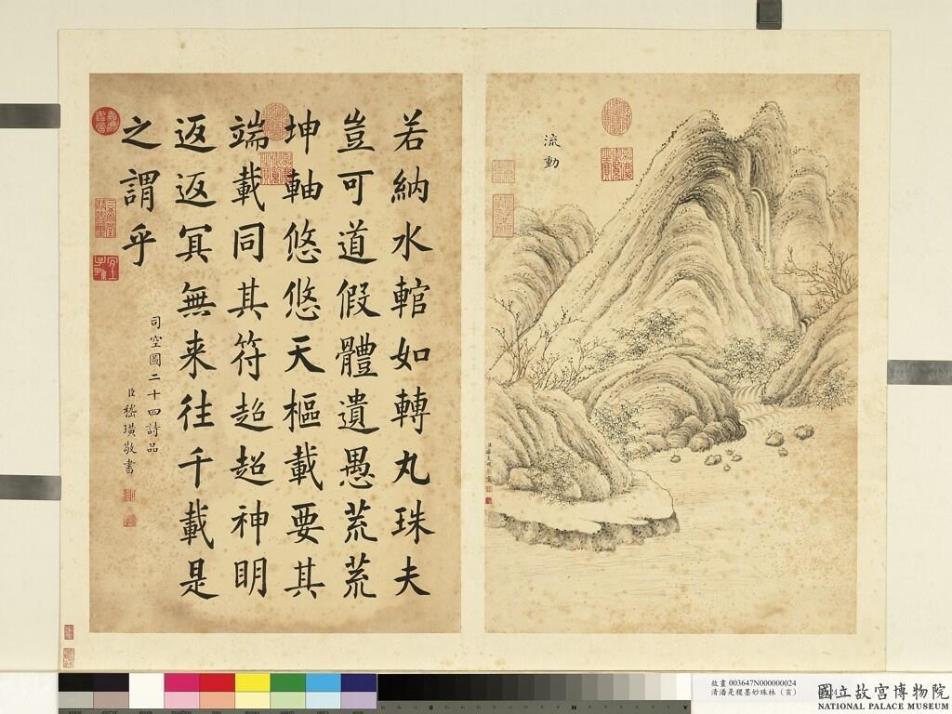 流動
若納水輨如轉丸珠夫
豈可道假體遺愚荒荒
坤軸悠悠天樞載要其
端載同其符超超神明
返返冥無来往千載是
之謂乎
司空圖二十四詩品
臣嵇璜敬書
故畫 003647N000000024
清潘是稷墨妙珠林（亥）
國立故宮博物院
NATIONAL PALACE MUSEUM